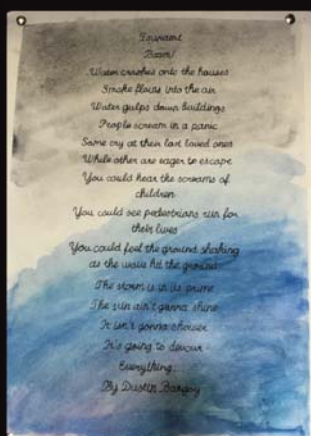 Tsunami
Boom!
Water crashes onto the houses
Smoke floats into the air
Water gulps down buildings
People scream in a panic
Some cry at their lost loved ones
While other are eager to escape
You could hear the screams of
children
You could see pedestrians run for
their lives
You could feel the ground shaking
as the waves hit the ground
The storm is in its prime
The sun ain't gonna shine
It isn't gonna shower
It's going to devour
Everything...
By Dustin